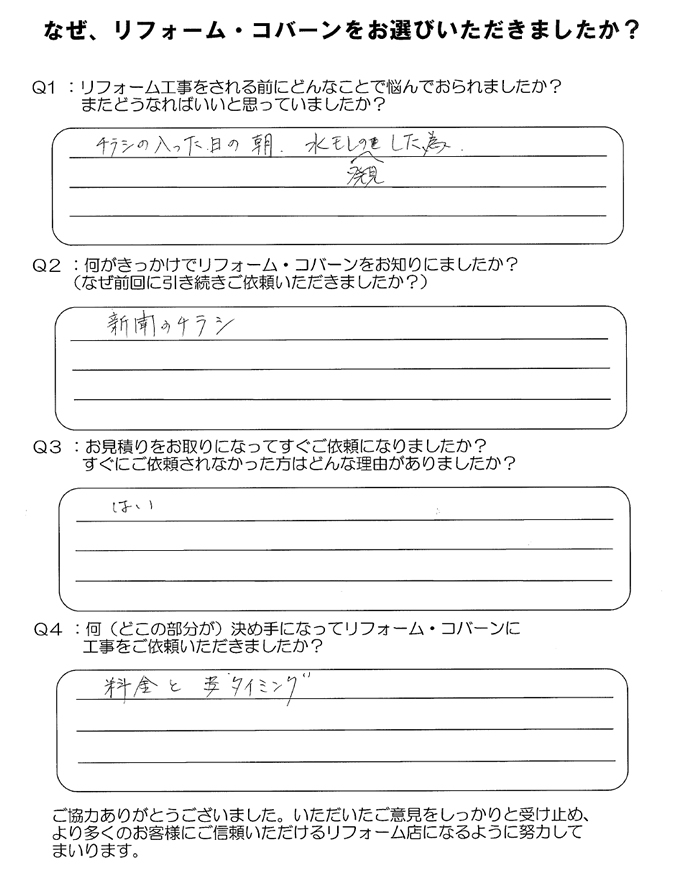 なぜ、リフォーム・コバーンをお選びいただきましたか？
Q1 ：リフォーム工事をされる前にどんなことで悩んでおられましたか？
またどうなればいいと思っていましたか？
チラシの入った日の朝．水モレのを した為．
発見
Q2 ：何がきっかけでリフォーム・コバーンをお知りにましたか？
（なぜ前回に引き続きご依頼いただきましたか？）
新聞のチラシ
Q3 ：お見積りをお取りになってすぐご依頼になりましたか？
すぐにご依頼されなかった方はどんな理由がありましたか？
はい
Q4 ：何（どこの部分が）決め手になってリフォーム・コバーンに
工事をご依頼いただきましたか？
料金と "タイミング"
ご協力ありがとうございました。いただいたご意見をしっかりと受け止め、
より多くのお客様にご信頼いただけるリフォーム店になるように努力して
まいります。